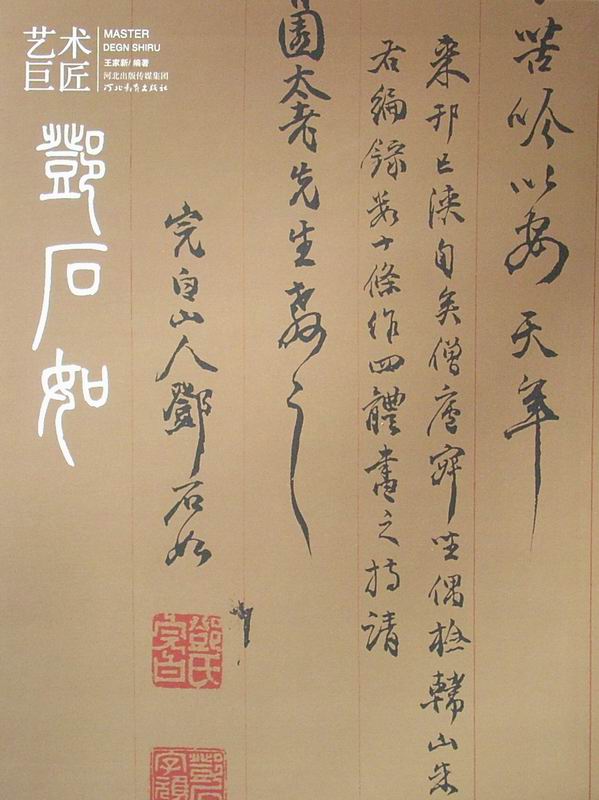 艺术
巨匠
MASTER
DEGN SHIRU
王家新/编著
河北出版传媒集团
河北教育出版社
鄧石如
苦吟以安天年
来邗已浃旬矣僧廬寂坐偶檢韓山朱
君編錄数十條作四體書之持請
園太老先生教之
完白山人鄧石如
鄧氏
完白
鄧石
字頑